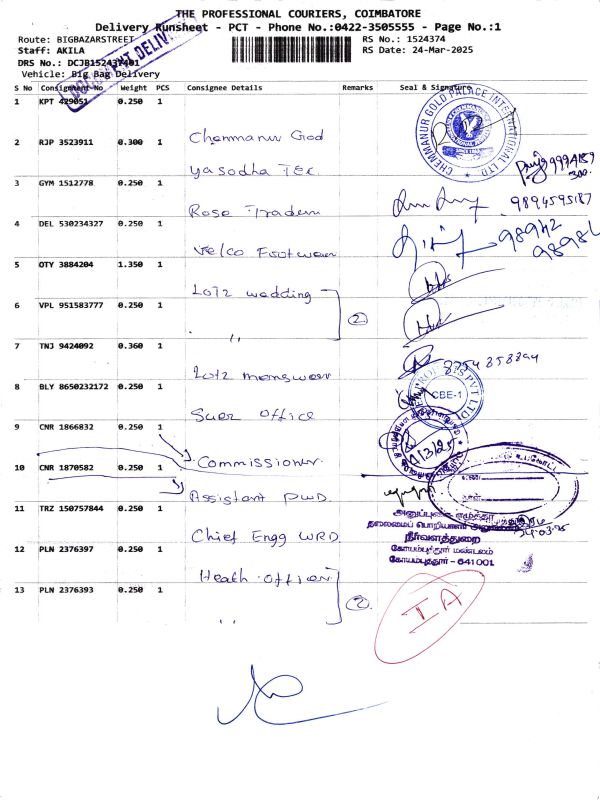 THE PROFESSIONAL COURIERS, COIMBATORE
Delivery Runsheet - PCT - Phone No.:0422-3505555 - Page No.:1
Route: BIGBAZARSTREET
RS No.: 1524374
Staff: AKILA
RS Date: 24-Mar-2025
DRS No.: DCJB152437401
Vehicle: Big Bag Delivery
S No Consignment No Weight PCS Consignee Details Remarks Seal & Signature
1 KPT 429051 0.250 1
Chemmanur God
CHEMMANUR GOLD PALACE INTERNATIONAL LTD
2 RJP 3523911 0.300 1
Yasodha Tex
3 GYM 1512778 0.250 1
Rose Traders
9894595187
4 DEL 530234327 0.250 1
Velco Footwear
98942
5 OTY 3884204 1.350 1
Lotz wedding
6 VPL 951583777 0.250 1
" 2
7 TNJ 9424092 0.360 1
Lotz menswear
8754 358394
8 BLY 8650232172 0.250 1
Suer Office
CBE-1
9 CNR 1866832 0.250 1
Commissioner
10 CNR 1870582 0.250 1
Assistant PWD
11 TRZ 150757844 0.250 1
Chief Engg WRD
தலைமைப் பொறியாளர்
நீர்வளத்துறை
கோயம்புத்தூர் மண்டலம்
கோயம்புத்தூர் - 641001
24.03.25
12 PLN 2376397 0.250 1
Heath officer
13 PLN 2376393 0.250 1
" 2
IA